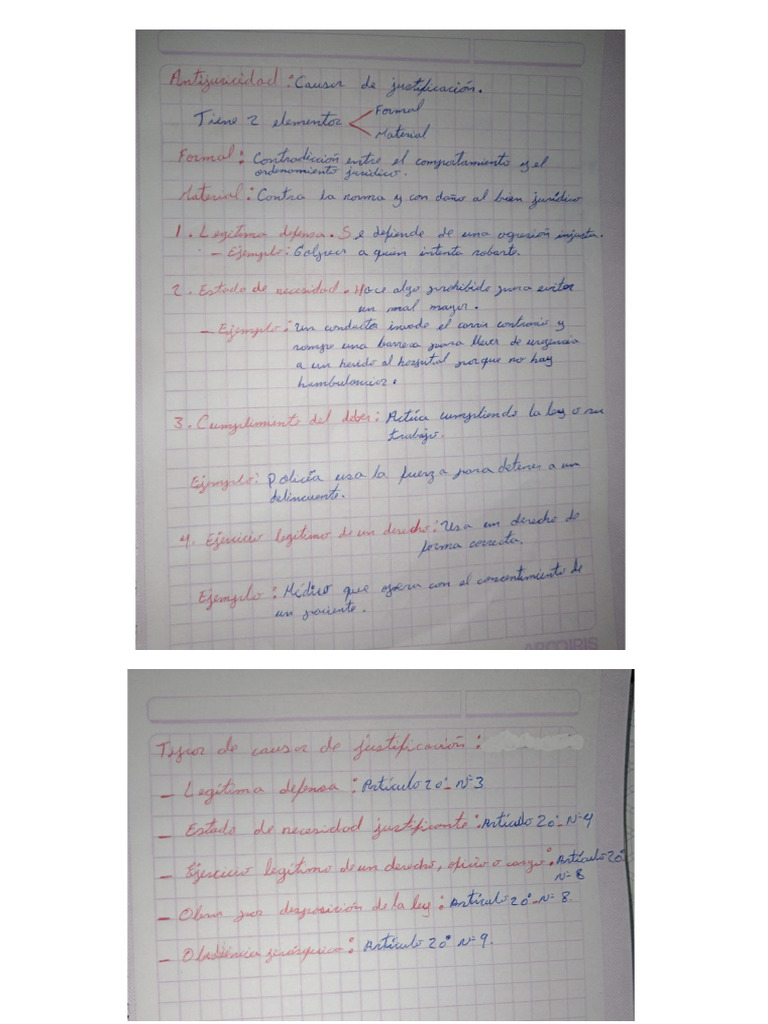 Antijuricidad: Causas de justificación.
Tiene 2 elementos
Formal
Material
Formal: Contradicción entre el comportamiento y el
ordenamiento jurídico.
Material: Contra la norma y con daño al bien jurídico
1. Legítima defensa. Se defiende de una agresión injusta.
- Ejemplo: Golpear a quien intenta robarte.
2. Estado de necesidad. Hace algo prohibido para evitar
un mal mayor.
- Ejemplo: Un conductor invade el carril contrario y
rompe una barrera para llevar de urgencia
a un herido al hospital porque no hay
hambulancias.
3. Cumplimiento del deber: Actúa cumpliendo la ley o su
trabajo.
Ejemplo: Policía usa la fuerza para detener a un
delincuente.
4. Ejercicio legítimo de un derecho: Usa un derecho de
forma correcta.
Ejemplo: Médico que opera con el concentimiento de
un paciente.
ARCOIRIS
Tipos de causas de justificación:
- Legítima defensa: Artículo 20°- N°3
- Estado de necesidad justificante: Artículo 20°- N°4
- Ejercicio legítimo de un derecho, oficio o cargo: Artículo 20°
N°8
- Obrar por disposición de la ley: Artículo 20°- N°8.
- Obediencia jerárquica: Artículo 20° N°9.